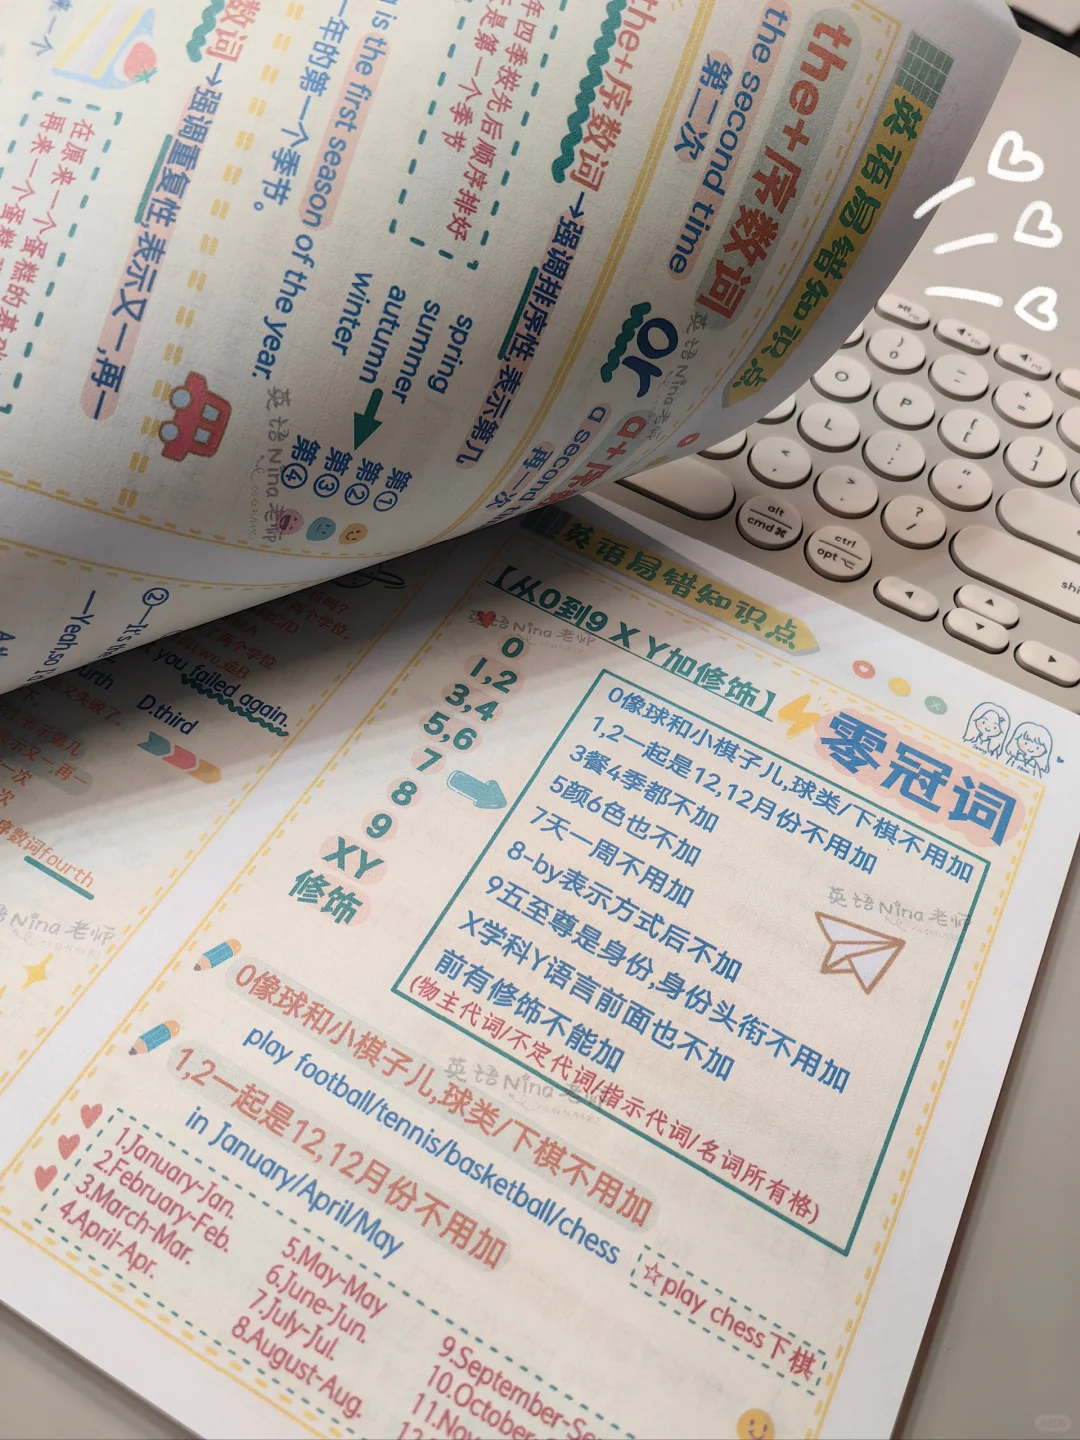 英语易错知识点
the+序数词
the second time
第二次
or
a second
再一次
the+序数词→强调排序性,表示第几
spring
summer
autumn
winter
第①
第②
第③
第④
is the first season of the year.
一年的第一个季节。
数词→强调重复性,表示又一,再一
在原来一个蛋糕的基础
再来一个蛋糕
英语Nina老师
you failed again.
D.third
序数词fourth
英语Nina老师
英语易错知识点
【从0到9 X Y加修饰】
零冠词
英语Nina老师
0
1,2
3,4
5,6
7
8
9
XY
修饰
0像球和小棋子儿,球类/下棋不用加
1,2一起是12,12月份不用加
3餐4季都不加
5颜6色也不加
7天一周不用加
8-by表示方式后不加
9五至尊是身份,身份头衔不用加
X学科Y语言前面也不加
前有修饰不能加
(物主代词/不定代词/指示代词/名词所有格)
英语Nina老师
0像球和小棋子儿,球类/下棋不用加
play football/tennis/basketball/chess
☆play chess下棋
英语Nina老师
1,2一起是12,12月份不用加
in January/April/May
1.January-Jan.
2.February-Feb.
3.March-Mar.
4.April-Apr.
5.May-May
6.June-Jun.
7.July-Jul.
8.August-Aug.
9.September-Se
10.October-
11.Nov
alt
cmd ⌘
ctrl
opt ⌥
shi